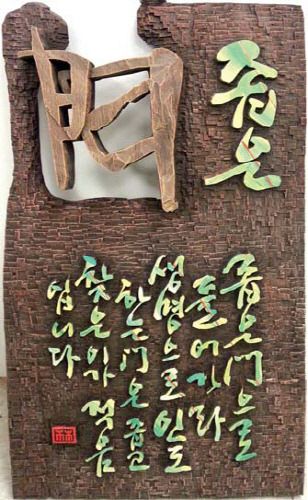 좁은
門
좁은門으로
들어가라
생명으로 인도
하는門은
찾는이가 적음
입니다